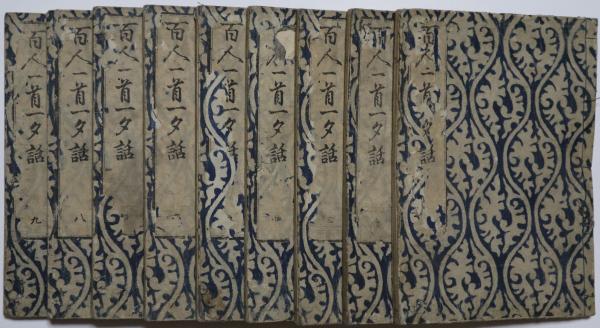 百人一首一夕話
百人一首一夕話
人一首一夕話
百人一首一夕話
人一首一夕話
百人一首一夕話
百人一首一夕話
百人一首一夕話 八
百人一首一夕話 九